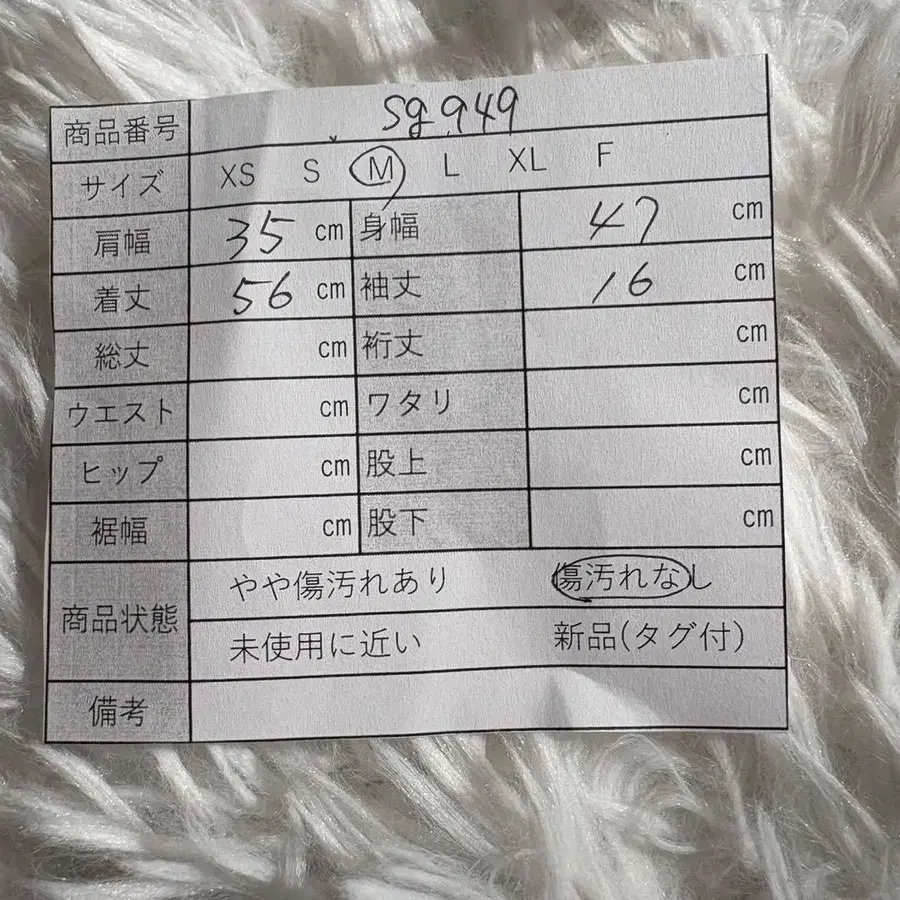 商品番号 sg949
サイズ XS S M L XL F
肩幅 35 cm 身幅 47 cm
着丈 56 cm 袖丈 16 cm
総丈 cm 裄丈 cm
ウエスト cm ワタリ cm
ヒップ cm 股上 cm
裾幅 cm 股下 cm
商品状態 やや傷汚れあり 傷汚れなし
未使用に近い 新品(タグ付)
備考